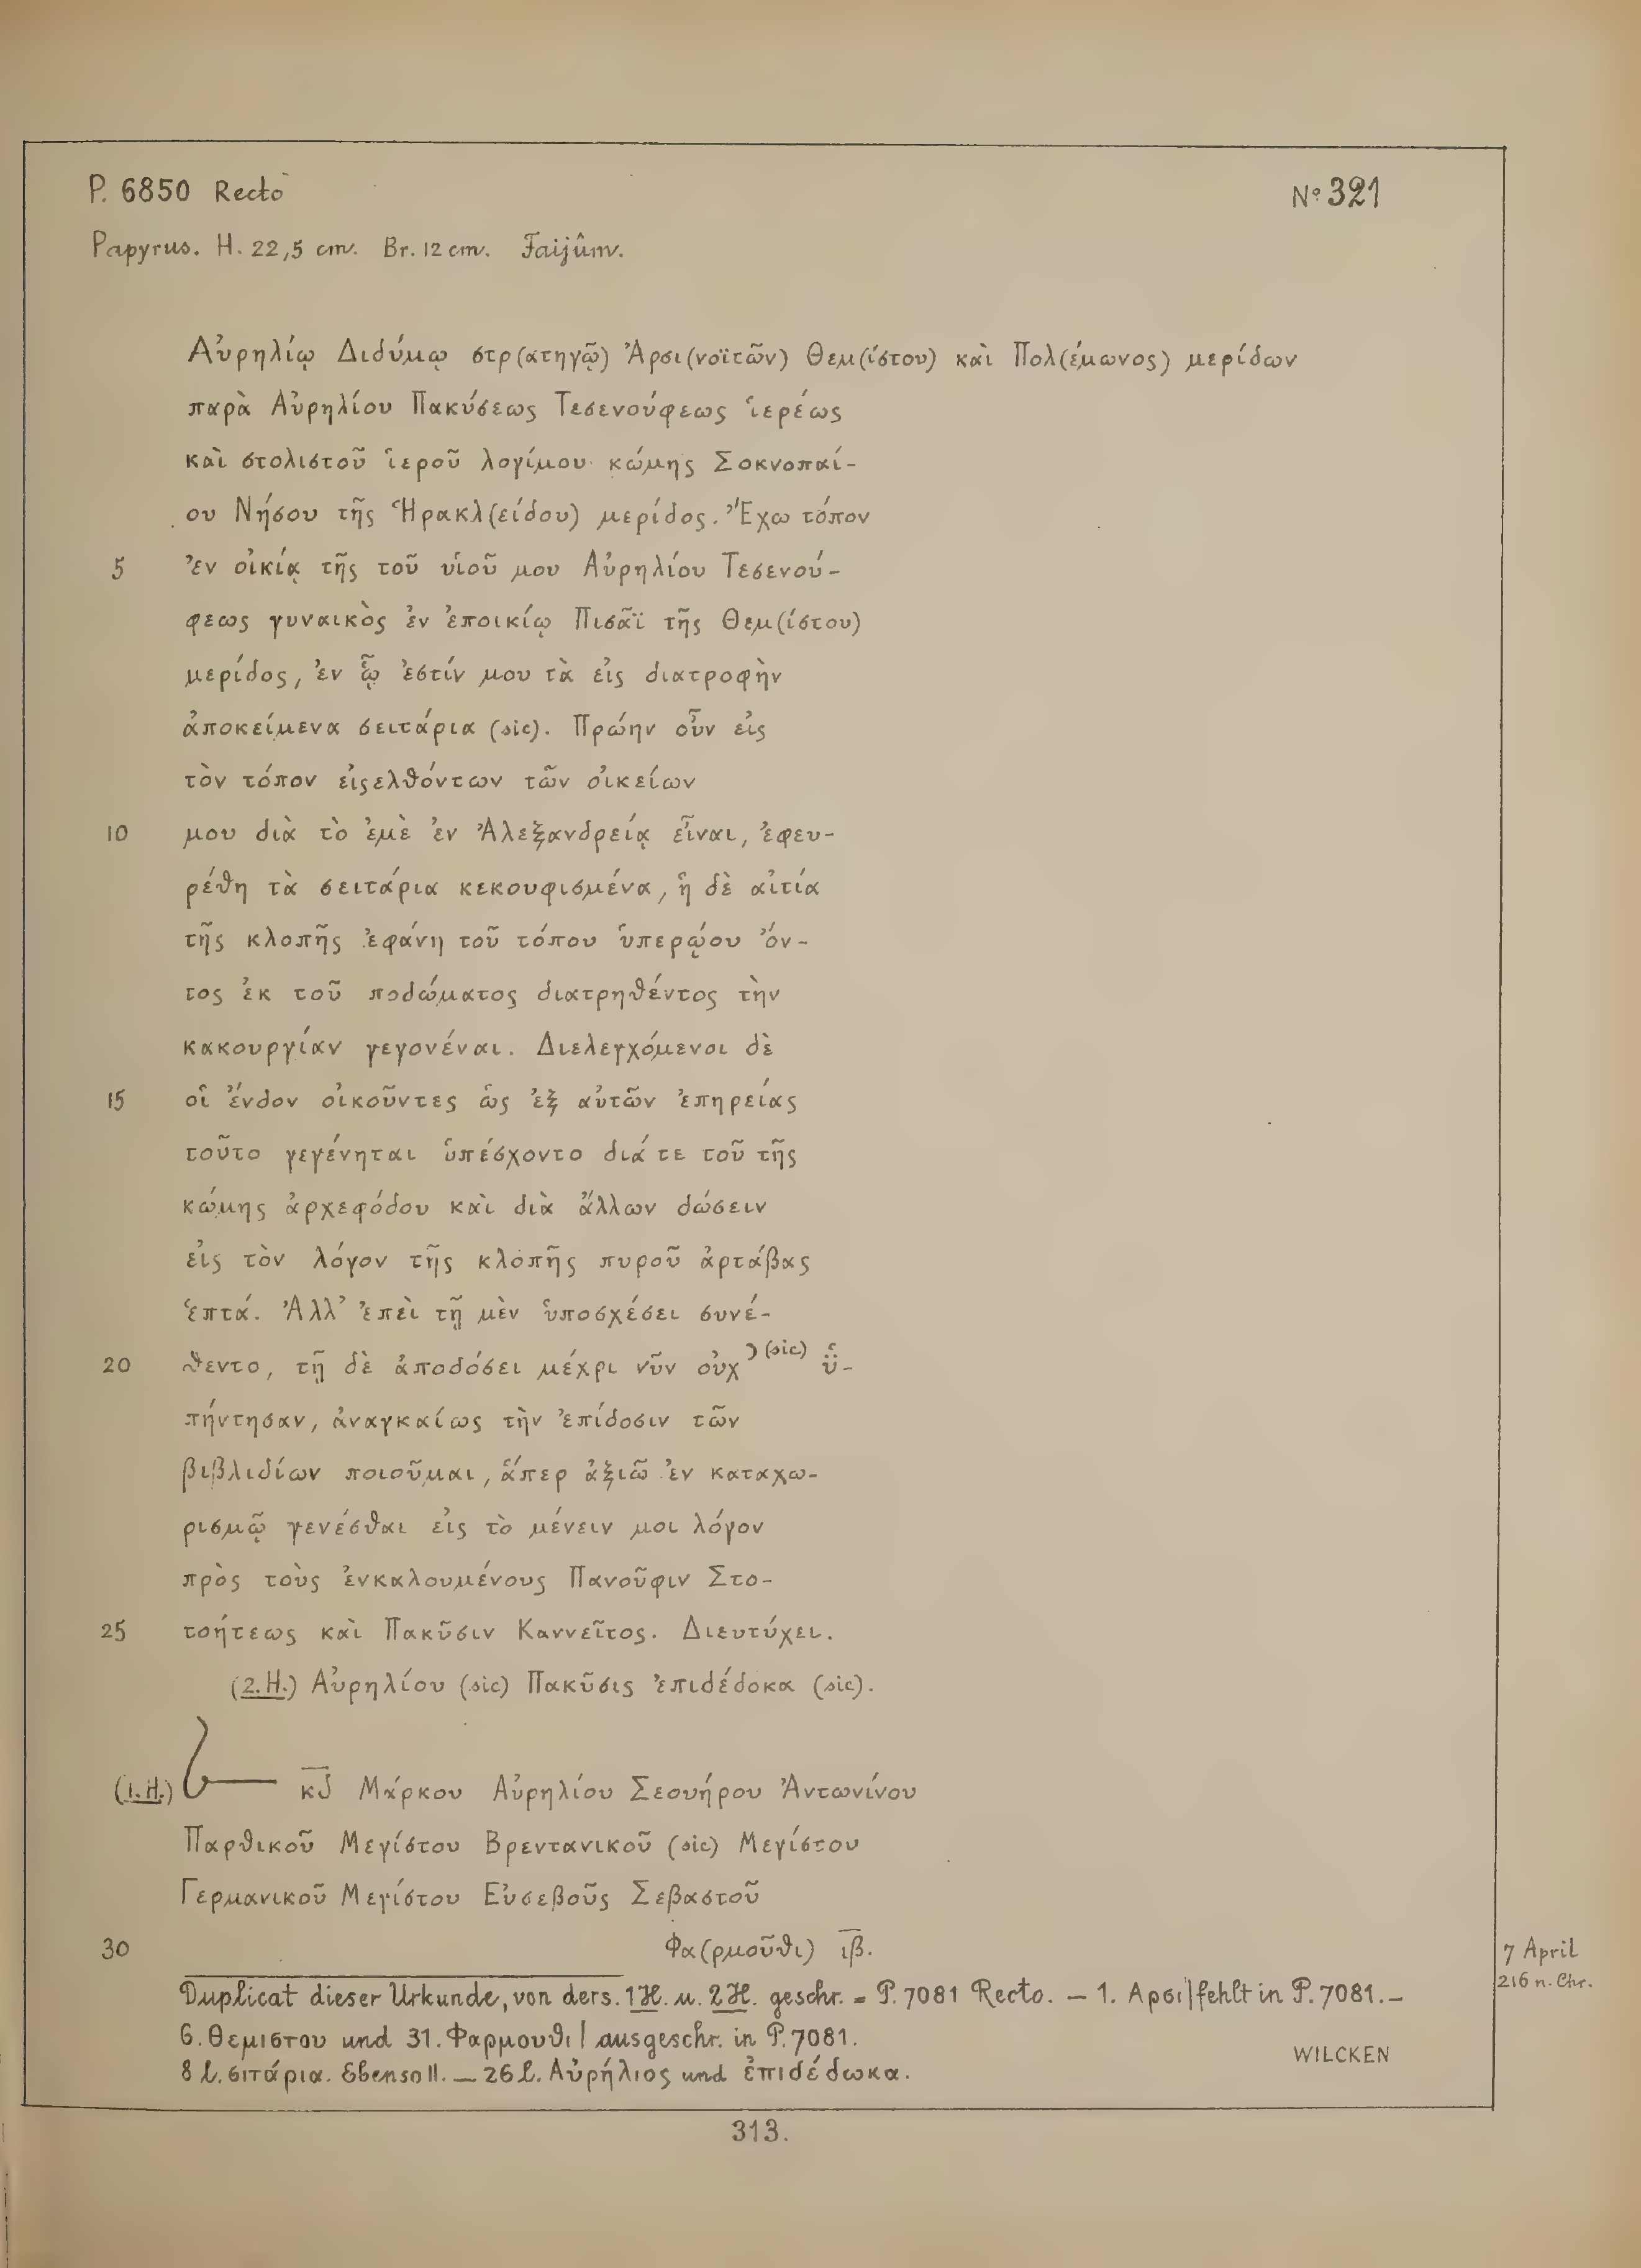 P. 6850 Recto
Nº 321
Papyrus. H. 22,5 cm. Br. 12 cm. Faijûm.
Αὐρηλίῳ Διδύμῳ στρ(ατηγῷ) Ἀρσι(νοϊτῶν) Θεμ(ίστου) καὶ Πολ(έμωνος) μερίδων
παρὰ Αὐρηλίου Πακύσεως Τεσενούφεως ἱερέως
καὶ στολιστοῦ ἱεροῦ λογίμου κώμης Σοκνοπαί-
ου Νήσου τῆς Ἡρακλ(είδου) μερίδος. Ἔχω τόπον
5 ἐν οἰκίᾳ τῆς τοῦ υἱοῦ μου Αὐρηλίου Τεσενού-
φεως γυναικὸς ἐν ἐποικίῳ Πισᾶϊ τῆς Θεμ(ίστου)
μερίδος, ἐν ᾧ ἐστίν μου τὰ εἰς διατροφὴν
ἀποκείμενα σειτάρια (sic). Πρώην οὖν εἰς
τὸν τόπον εἰςελθόντων τῶν οἰκείων
10 μου διὰ τὸ ἐμὲ ἐν Ἀλεξανδρείᾳ εἶναι, ἐφευ-
ρέθη τὰ σειτάρια κεκουφισμένα, ἡ δὲ αἰτία
τῆς κλοπῆς ἐφάνη τοῦ τόπου ὑπερῴου ὄν-
τος ἐκ τοῦ ποδώματος διατρηθέντος τὴν
κακουργίαν γεγονέναι. Διελεγχόμενοι δὲ
15 οἱ ἔνδον οἰκοῦντες ὡς ἐξ αὐτῶν ἐπηρείας
τοῦτο γεγένηται ὑπέσχοντο διά τε τοῦ τῆς
κώμης ἀρχεφόδου καὶ διὰ ἄλλων δώσειν
εἰς τὸν λόγον τῆς κλοπῆς πυροῦ ἀρτάβας
ἑπτά. Ἀλλ’ ἐπεὶ τῇ μὲν ὑποσχέσει συνέ-
20 θεντο, τῇ δὲ ἀποδόσει μέχρι νῦν οὐχ’ (sic) ὑ̈-
πήντησαν, ἀναγκαίως τὴν ἐπίδοσιν τῶν
βιβλιδίων ποιοῦμαι, ἅπερ ἀξιῶ ἐν καταχω-
ρισμῷ γενέσθαι εἰς τὸ μένειν μοι λόγον
πρὸς τοὺς ἐνκαλουμένους Πανοῦφιν Στο-
25 τοήτεως καὶ Πακῦσιν Καννεῖτος. Διευτύχει.
(2. H.) Αὐρηλίου (sic) Πακῦσις ἐπιδέδοκα (sic).
(1. H.) κδ Μάρκου Αὐρηλίου Σεουήρου Ἀντωνίνου
Παρθικοῦ Μεγίστου Βρεντανικοῦ (sic) Μεγίστου
Γερμανικοῦ Μεγίστου Εὐσεβοῦς Σεβαστοῦ
30 Φα(ρμοῦθι) ιβ.
7 April
216 n. Chr.
Duplicat dieser Urkunde, von ders. 1 H. u. 2 H. geschr. = P. 7081 Recto. — 1. Αρσι| fehlt in P. 7081. —
6. Θεμιστου und 31. Φαρμουθι| ausgeschr. in P. 7081.
8 l. σιτάρια. Ebenso 11. — 26 l. Αὐρήλιος und ἐπιδέδωκα.
WILCKEN
313.